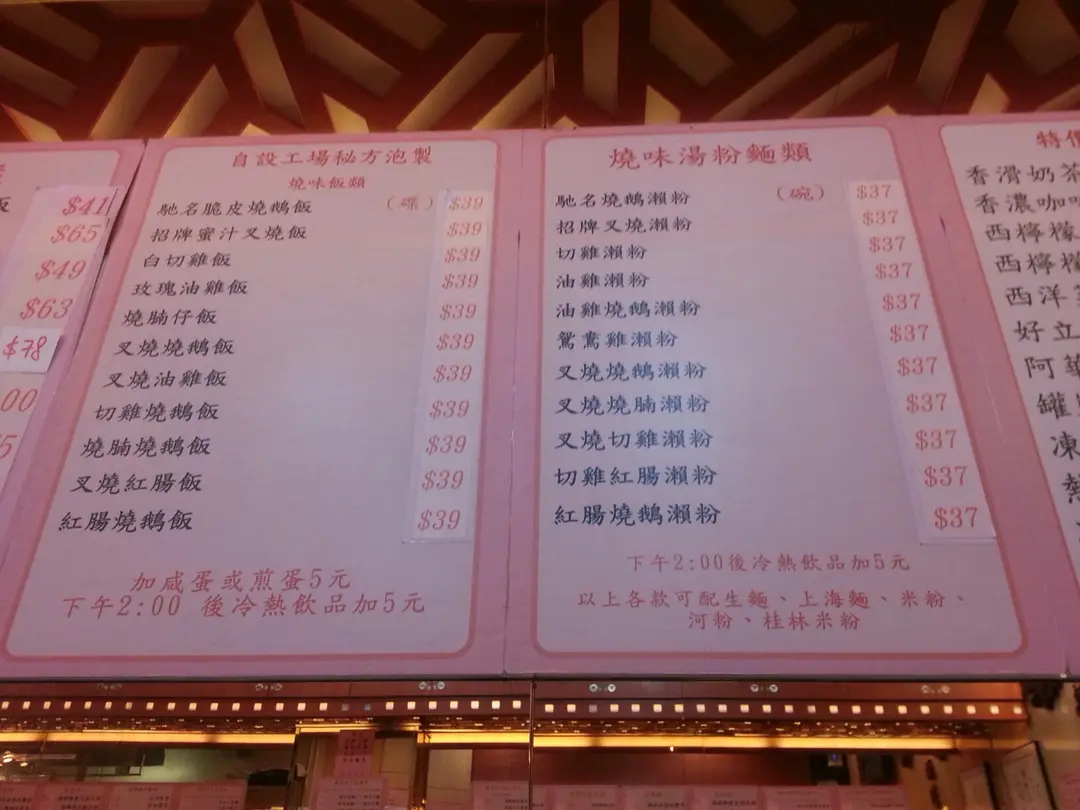 飯
$41
$65
$49
$63
$78
00
5
自設工場秘方泡製
燒味飯類
馳名脆皮燒鵝飯 (碟) $39
招牌蜜汁叉燒飯 $39
白切雞飯 $39
玫瑰油雞飯 $39
燒腩仔飯 $39
叉燒燒鵝飯 $39
叉燒油雞飯 $39
切雞燒鵝飯 $39
燒腩燒鵝飯 $39
叉燒紅腸飯 $39
紅腸燒鵝飯 $39
加咸蛋或煎蛋5元
下午2:00 後冷熱飲品加5元
燒味湯粉麵類
馳名燒鵝瀨粉 (碗) $37
招牌叉燒瀨粉 $37
切雞瀨粉 $37
油雞瀨粉 $37
油雞燒鵝瀨粉 $37
鴛鴦雞瀨粉 $37
叉燒燒鵝瀨粉 $37
叉燒燒腩瀨粉 $37
叉燒切雞瀨粉 $37
切雞紅腸瀨粉 $37
紅腸燒鵝瀨粉 $37
下午2:00後冷熱飲品加5元
以上各款可配生麵、上海麵、米粉、
河粉、桂林米粉
特價
香滑奶茶
香濃咖啡
西檸檬
西檸檬
西洋
好立
阿華
罐
凍
熱